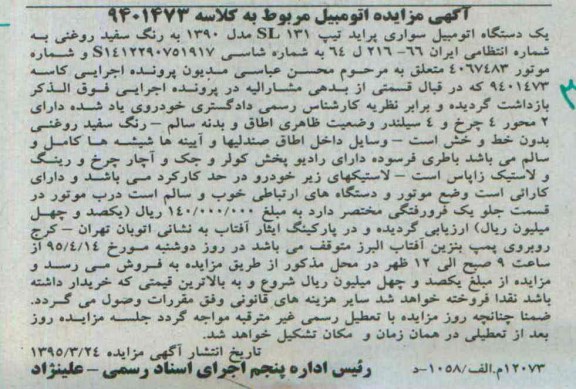 آگهی مزایده اتومبیل مربوط به کلاسه ۹۴۰۱۴۷۳
یک دستگاه اتومبیل سواری پراید تیپ SL ۱۳۱ مدل ۱۳۹۰ به رنگ سفید روغنی به
شماره انتظامی ایران ۶۶– ۲۱۶ ل ۶۴ به شماره شاسی S۱۴۱۲۲۹۰۷۵۱۹۱۷ و شماره
موتور ۴۰۶۷۴۸۳ متعلق به مرحوم محسن عباسی مدیون پرونده اجرایی کلاسه
۹۴۰۱۴۷۳ که در قبال قسمتی از بدهی مشارالیه در پرونده اجرایی فوق الذکر
بازداشت گردیده و برابر نظریه کارشناس رسمی دادگستری خودروی یاد شده دارای
۲ محور ۴ چرخ و ۴ سیلندر وضعیت ظاهری اطاق و بدنه سالم – رنگ سفید روغنی
بدون خط و خش است – وسایل داخل اطاق صندلیها و آیینه ها شیشه ها کامل و
سالم می باشد باطری فرسوده دارای رادیو پخش کولر و جک و آچار چرخ و رینگ
و لاستیک زاپاس است – لاستیکهای زیر خودرو در حد کارکرد می باشد و دارای
کارائی است وضع موتور و دستگاه های ارتباطی خوب و سالم است درب موتور در
قسمت جلو یک فرورفتگی مختصر دارد به مبلغ ۱۴۰/۰۰۰/۰۰۰ ریال (یکصد و چهل
میلیون ریال) ارزیابی گردیده و در پارکینگ ایثار آفتاب به نشانی اتوبان تهران – کرج
روبروی پمپ بنزین آفتاب البرز متوقف می باشد در روز دوشنبه مورخ ۹۵/۴/۱۴ از
ساعت ۹ صبح الی ۱۲ ظهر در محل مذکور از طریق مزایده به فروش می رسد و
مزایده از مبلغ یکصد و چهل میلیون ریال شروع و به بالاترین قیمتی که خریدار داشته
باشد نقدا فروخته خواهد شد سایر هزینه های قانونی وفق مقررات وصول می گردد.
ضمنا چنانچه روز مزایده با تعطیل رسمی غیر مترقبه مواجه گردد جلسه مزایده روز
بعد از تعطیلی در همان زمان و مکان تشکیل خواهد شد.
تاریخ انتشار آگهی مزایده ۱۳۹۵/۳/۲۴
رئیس اداره پنجم اجرای اسناد رسمی – علینژاد
۱۲۰۷۳م.الف/۱۰۵۸–د